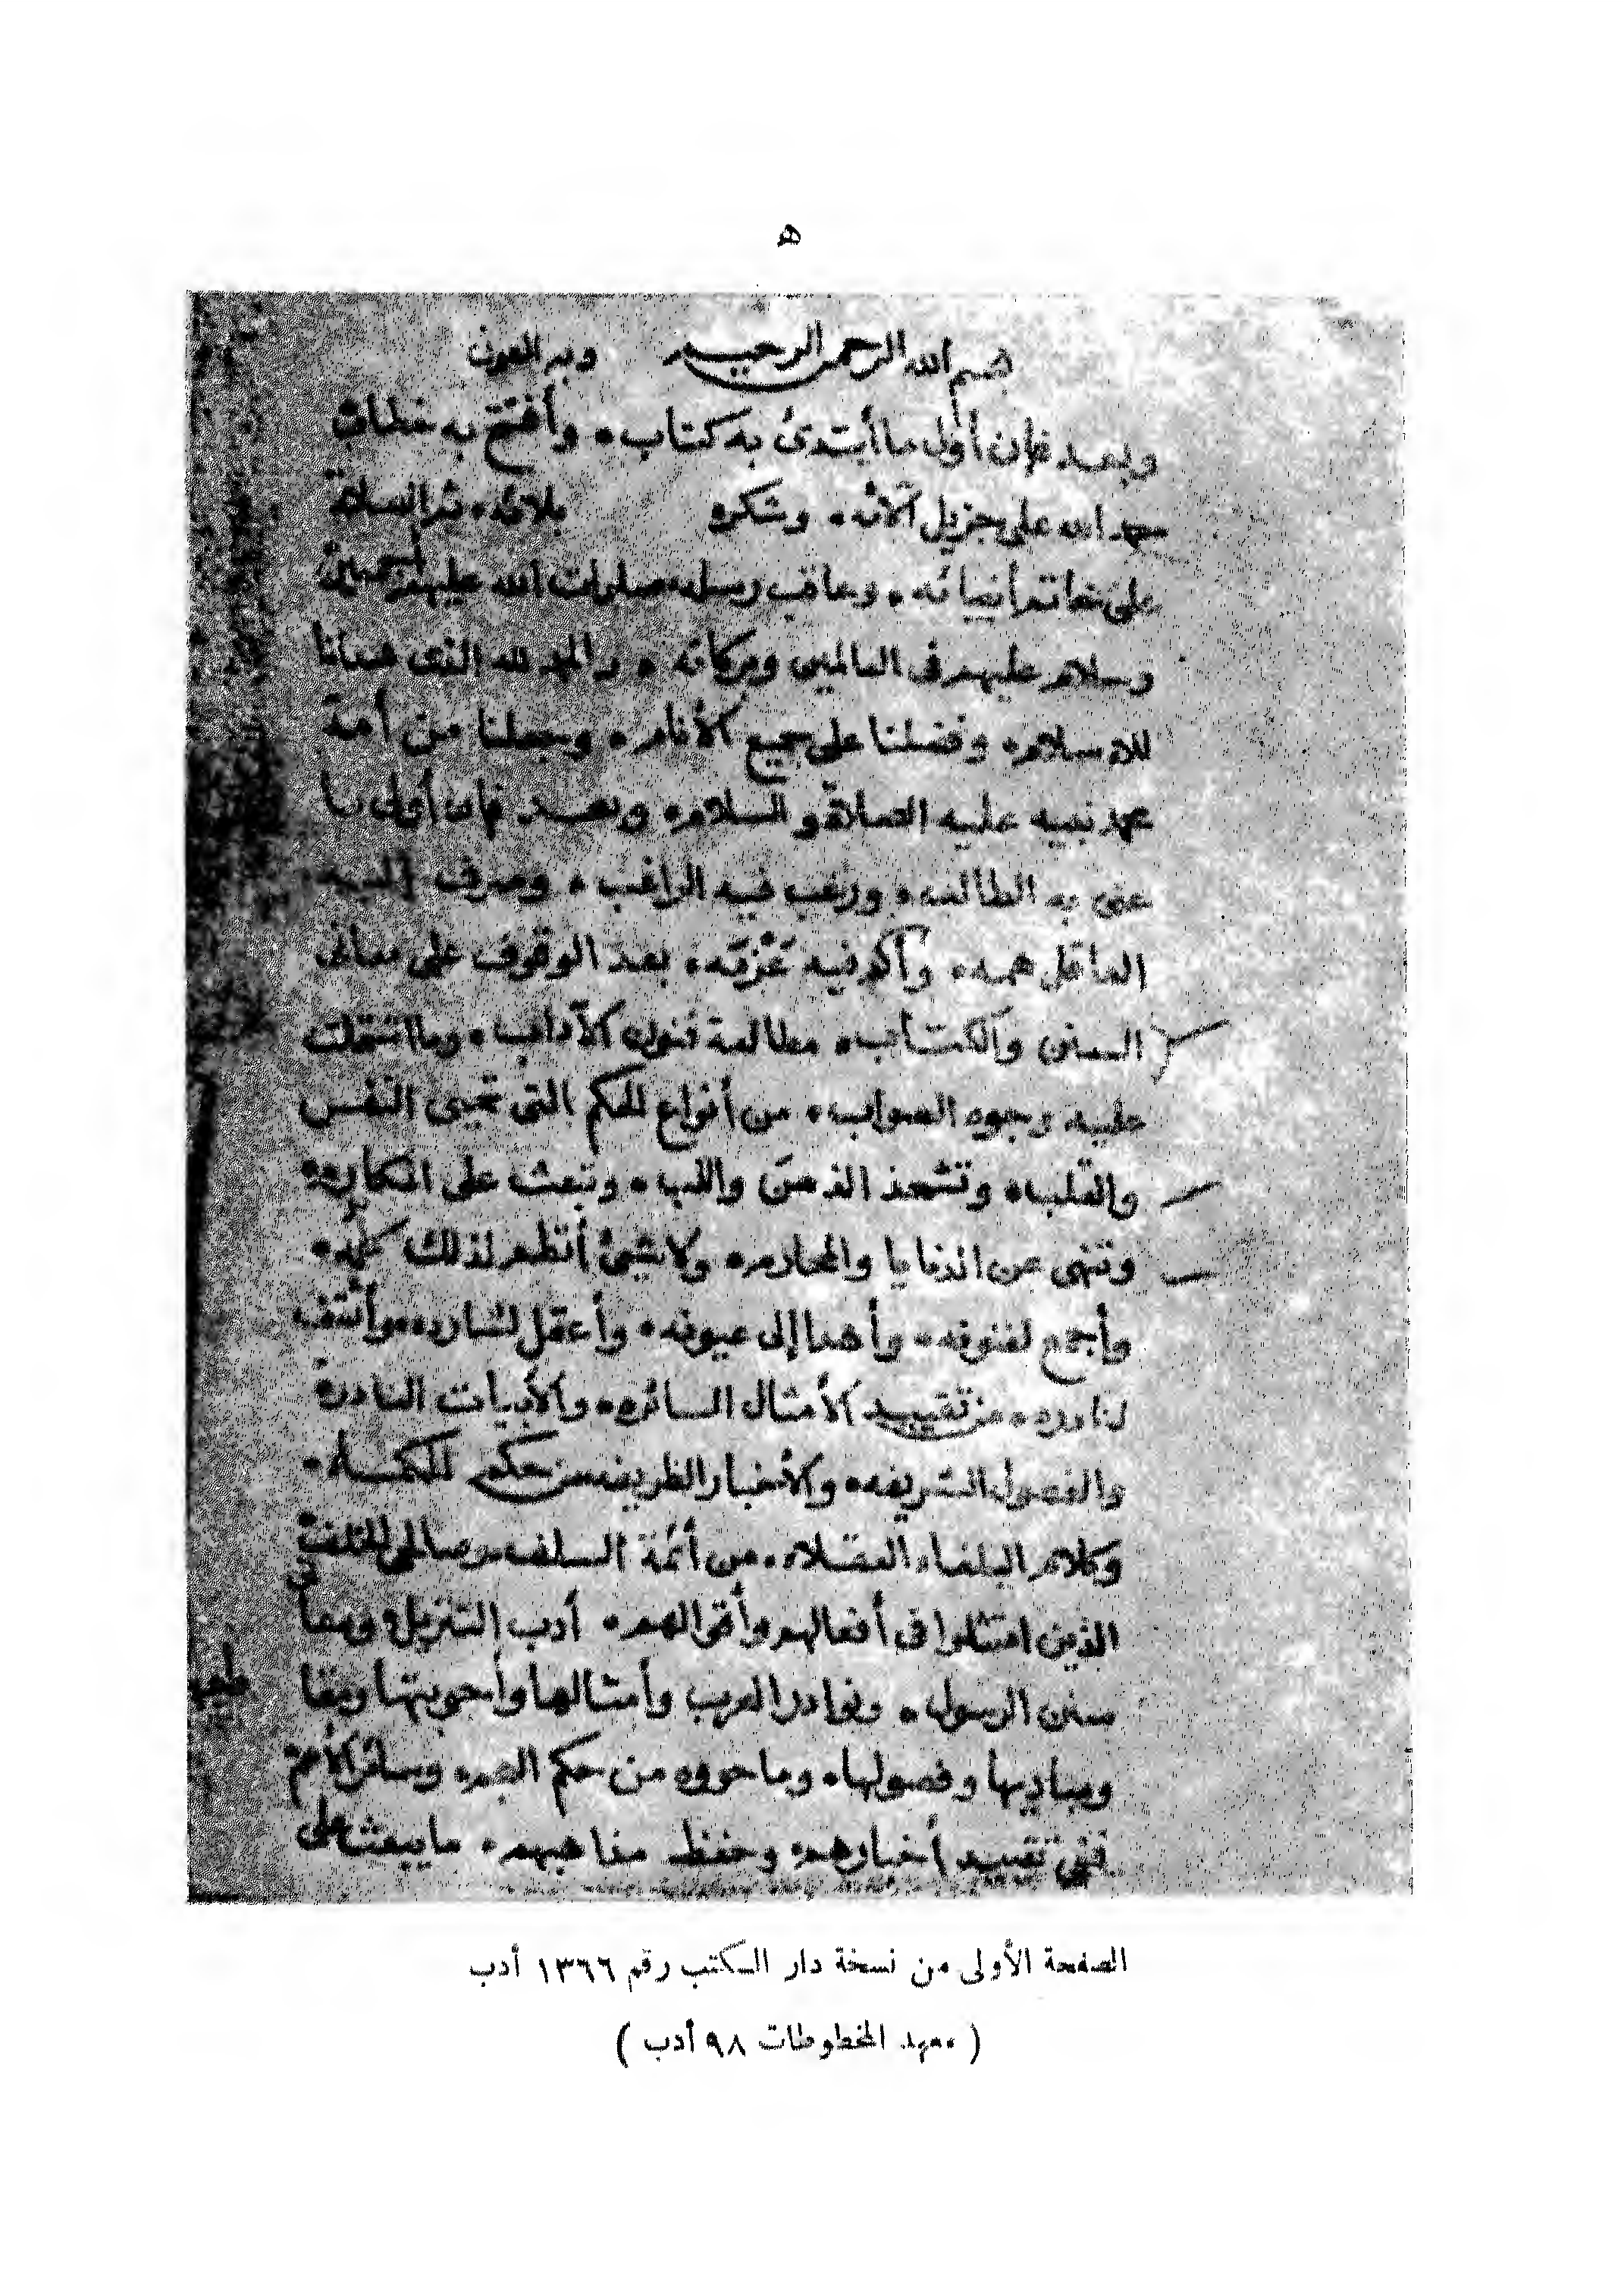 ه
بسم الله الرحمن الرحيم وبه العون
وبعد فإن أولى ما أبتدئ به كتاب وأفتتح به خطاب
حمد الله على جزيل آلائه وشكره بلائه ثم الصلاة
على خاتم أنبيائه وعاقب رسله صلوات الله عليهم أجمعين
وسلام عليهم في العالمين وبركاته والحمد لله الذي هدانا
للاسلام وفضلنا على جميع الأنام وجعلنا من أمة
محمد نبيه عليه الصلاة والسلام وبعد فإن أولى ما
عنى به الطالب ورغب فيه الراغب وصرف إليه
العاقل همه وأكد فيه عزمه بعد الوقوف على معاني
السنن والكتاب مطالعة فنون الآداب وما اشتملت
عليه وجوه الصواب من أنواع الحكم التي تحيي النفس
والقلب وتشحذ الذهن واللب وتبعث على المكارم
وتنهى عن الدنايا والمحارم ولا شيئ أنظم لذلك كله
وأجمع لفنونه وأهدا إلى عيونه وأعقل لشارده وأثقف
لنادره من تقييد الأمثال السائرة والأبيات النادرة
والفصول الشريفه والأخبار الظريفه من حكم الحكماء
وكلام البلغاء العقلاء من أئمة السلف وصالحي الخلف
الذين امتثلوا في أفعالهم وأقوالهم أدب التنزيل ومعاني
سنن الرسول ونوادر العرب وأمثالها وأجوبتها ومقا
ومباديها وفصولها وما حووه من حكم العجم وسائر الأمم
ففي تقييد أخبارهم وحفظ مذاهبهم ما يبعث على
الصفحة الأولى من نسخة دار الكتب رقم ١٣٦٦ أدب
( معهد المخطوطات ٩٨ أدب )